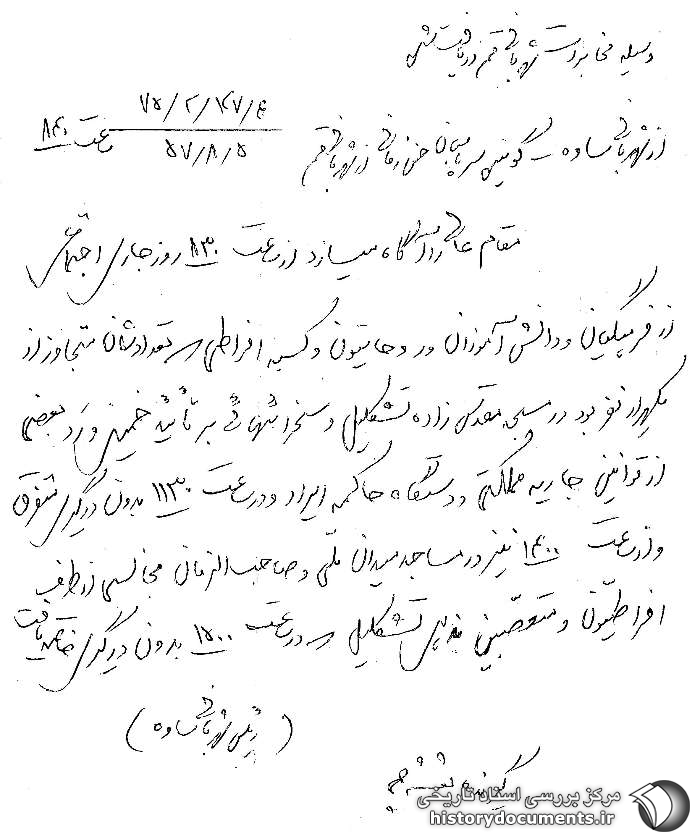 وسیله مخابرات شهربانی قم دریافت شد
۷۵/۲/۴۷/۶
از شهربانی ساوه گوینده پاسبان از شهربانی قم
۵۷/۸/۵ ساعت ۸۴۰
مقام عالی را آگاه میسازد از ساعت ۸۳۰ روز جاری اجتماعی
از فرهنگیان و دانش آموزان و روحانیون و کسبه افراطی که تعدادشان متجاوز از
یکهزار نفر بود در مسجد مقدس زاده تشکیل و سخنرانیهائی بر تأئید خمینی و رد بعضی
از قوانین جاریه مملکتی و دستگاه حاکمه ایراد و در ساعت ۱۱۳۰ بدون درگیری متفرق
و از ساعت ۱۴۰۰ نیز در مساجد میدان ملی و صاحب الزمان مجالسی از طرف
افراطیون و متعصبین مذهبی تشکیل که در ساعت ۱۵۰۰ بدون درگیری خاتمه یافت
(رئیس شهربانی ساوه)
گیرنده
مرکز بررسی اسناد تاریخی
historydocuments.ir